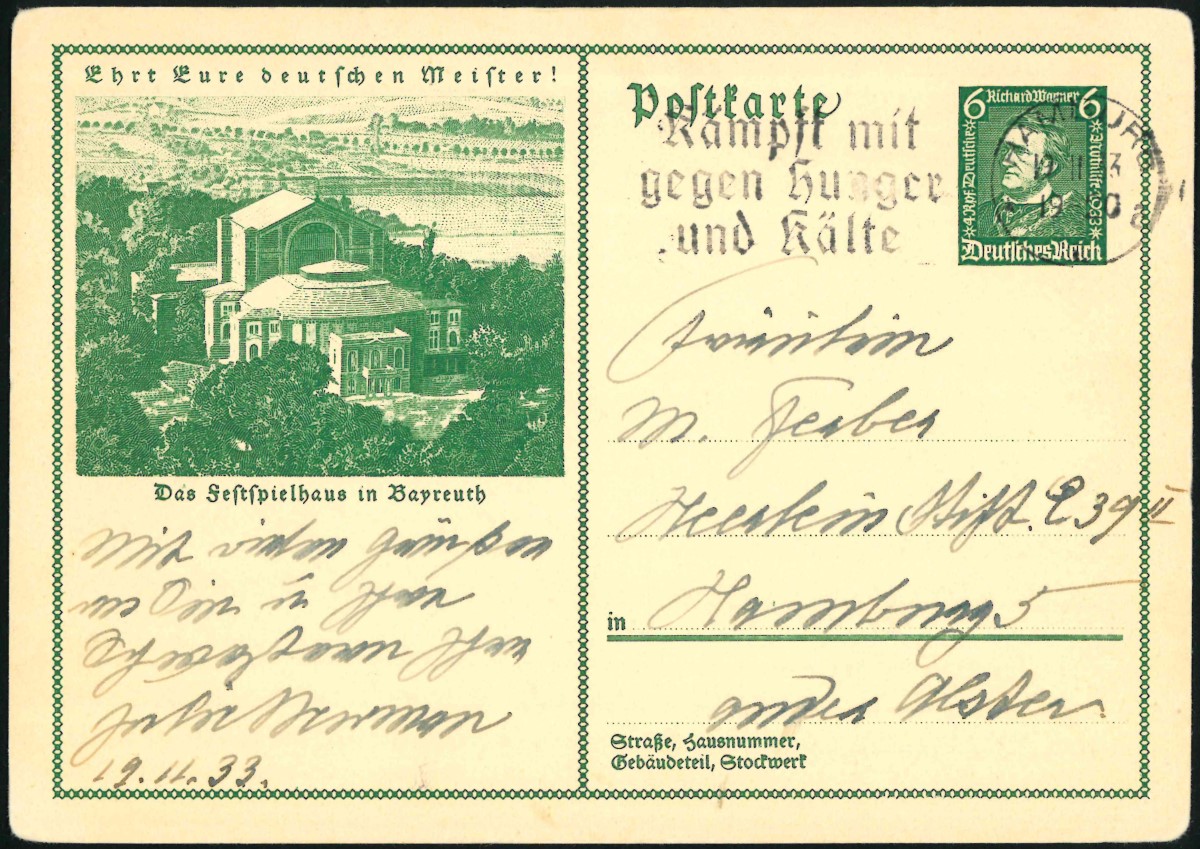 Ehrt Eure deutschen Meister!
Das Festspielhaus in Bayreuth
Mit vielen Grüßen
an Sie u. Ihre
Schwestern Ihre
19.11.33.
Postkarte
Kämpft mit
gegen Hunger
und Kälte
6 Richard Wagner 6
4 Rpf Deutsche
Nothilfe 1933
Deutsches Reich
Fräulein
M. Ferber
Stift. 39 II
in Hamburg 5
an der Alster.
Straße, Hausnummer,
Gebäudeteil, Stockwerk